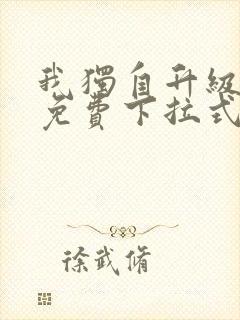 我獨自升級
免費下拉式
徐武脩